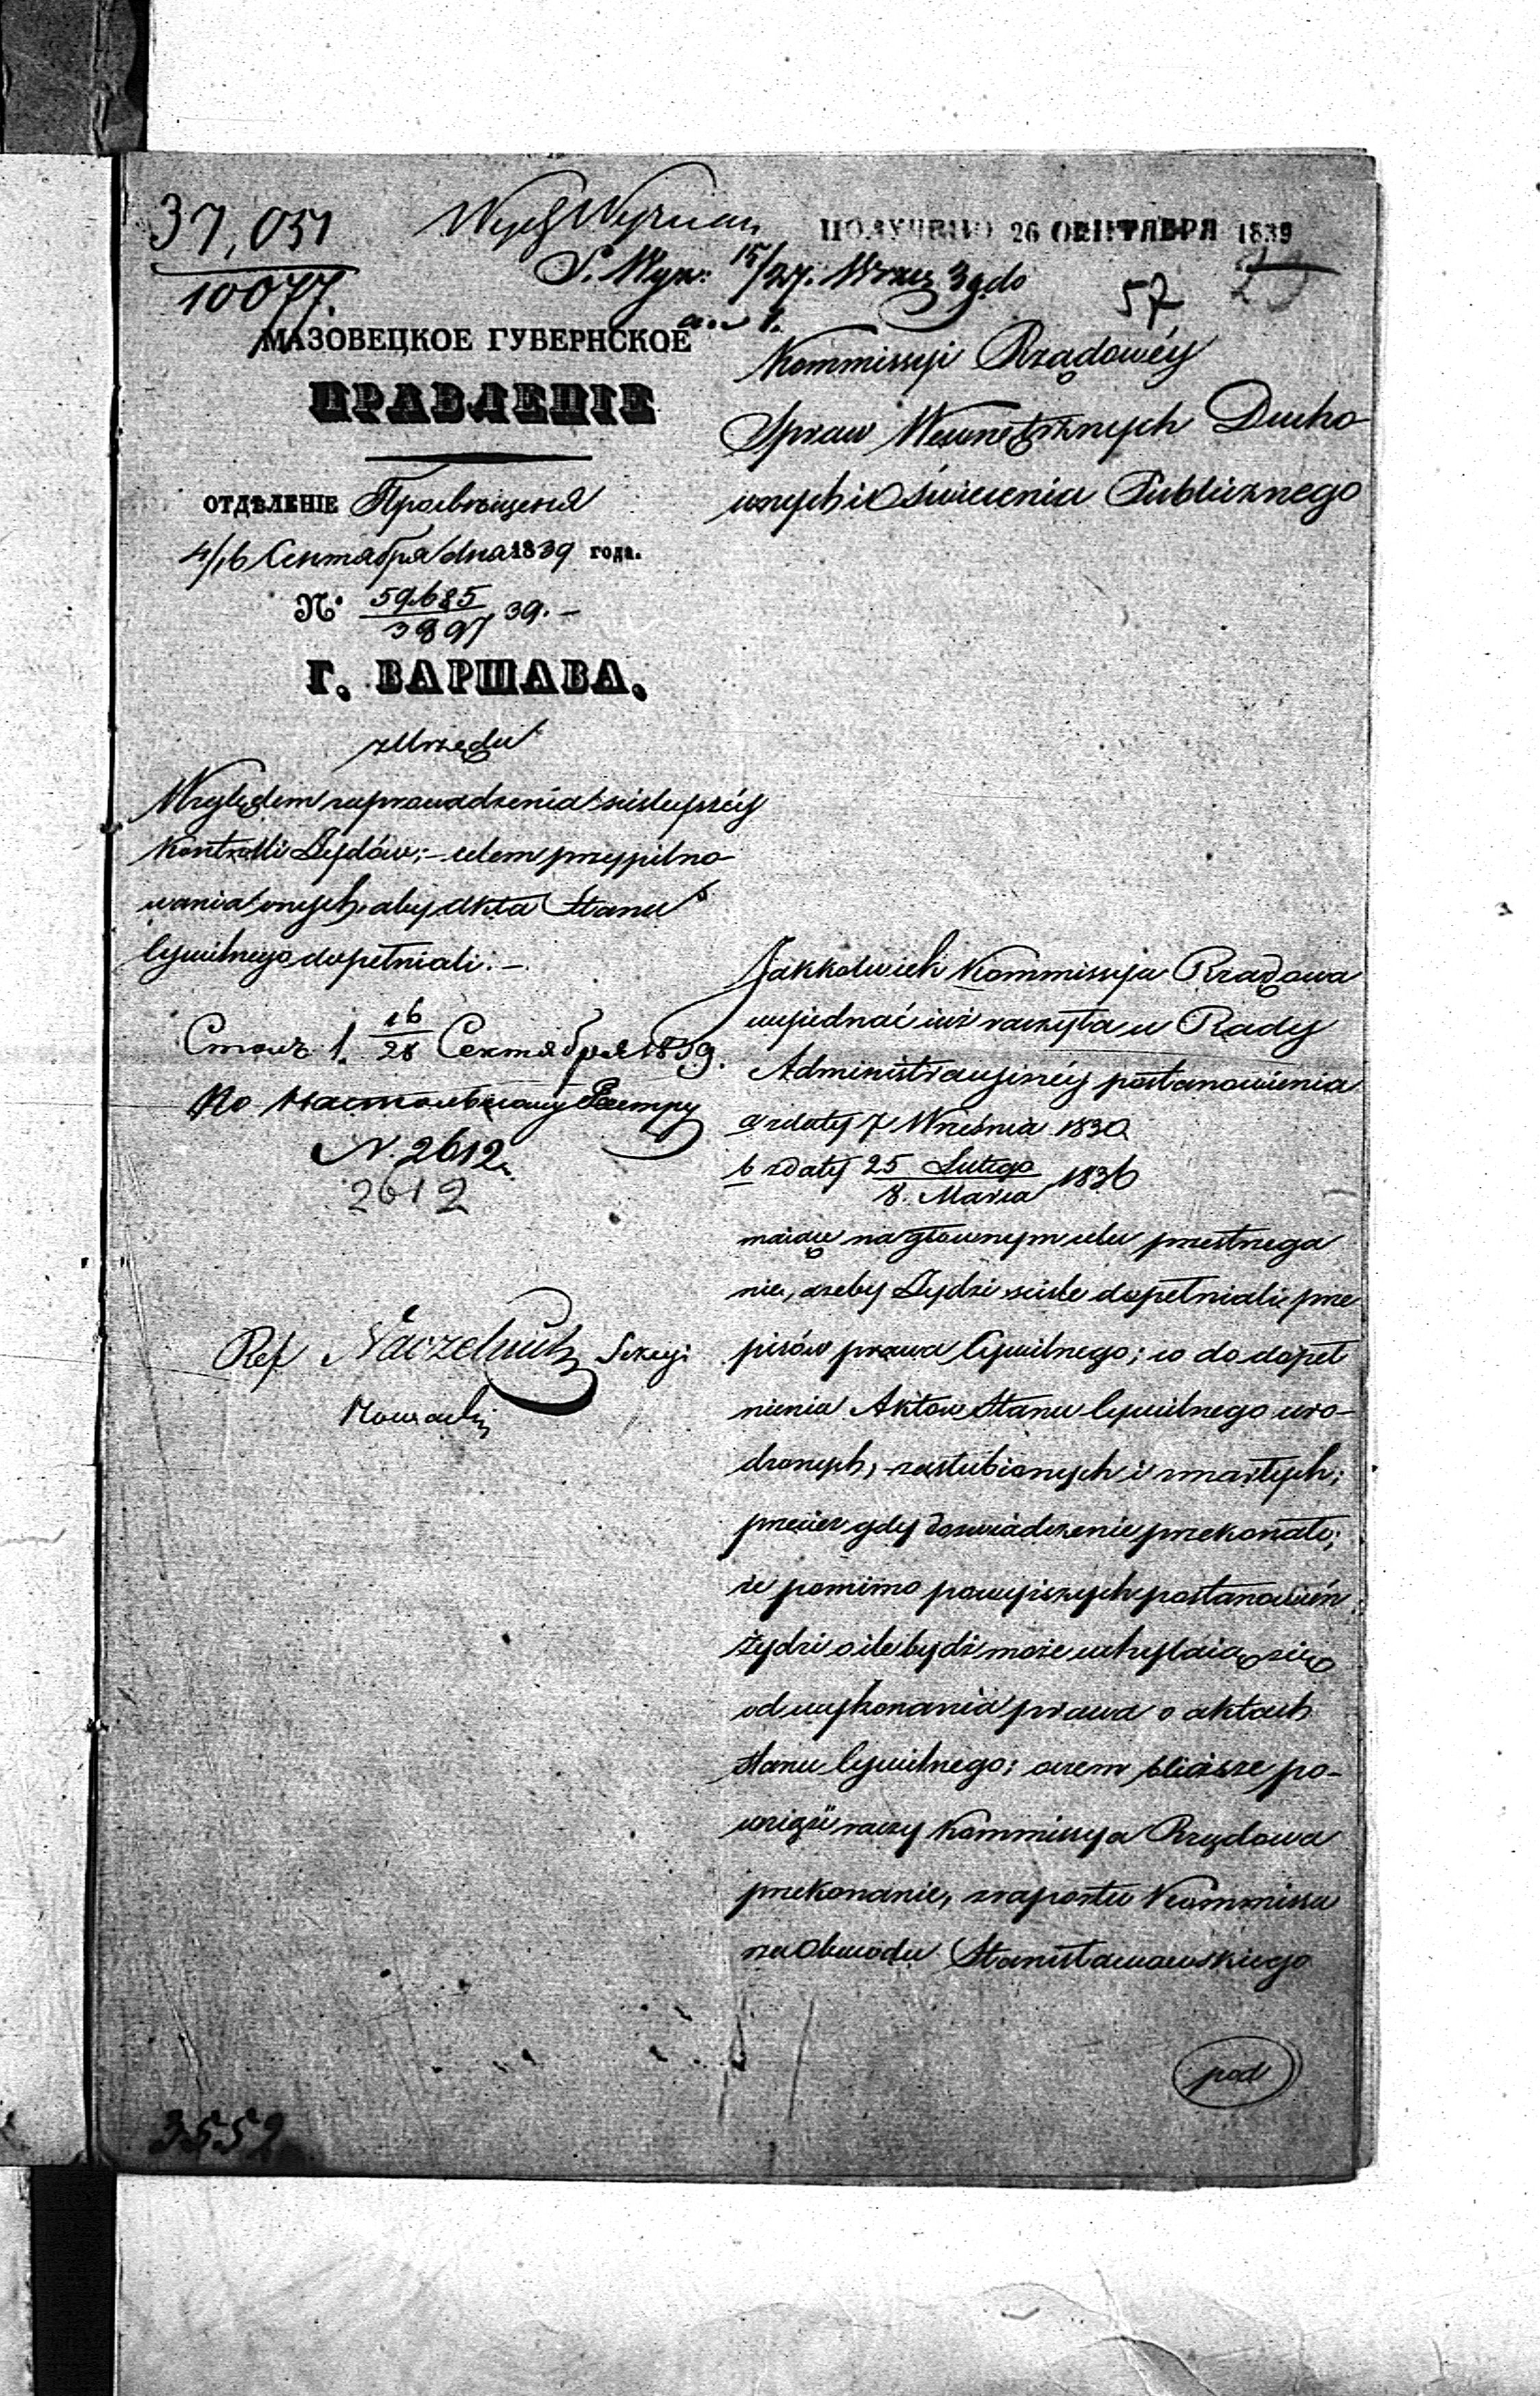 37,051
10077.
Wydz Wyznań
ПОЛУЧЕНО 26 СЕНТЯБРЯ 1839
S. Wyzn: 15/27. Wrześ 39. do
57
МАЗОВЕЦКОЕ ГУБЕРНСКОЕ
ПРАВЛЕНІЕ
ОТДѢЛЕНІЕ Просвѣщенія
4/16 Сентября/dnia 1839 года.
№. 59685/3897 39. –
Г. ВАРШАВА.
z Urzędu
Względem zaprowadzenia ściślejszéy
Kontrolli Żydów; – celem przypilno-
wania onych, aby Akta Stanu
Cywilnego dopełniali. –
Столъ 1. 16/28 Сентября 1839.
По Настольному Реестру
N 2612.
2612
Ref Naczelnik Sekcyi
Kommissyi Rządowéy
Spraw Wewnętrznych Ducho
wnych i Oświecenia Publicznego
Jakkolwiek Kommissya Rządowa
wyjednać iuż raczyła u Rady
Administracyinéy postanowienia
a z daty 7 Września 1830
b z daty 25 Lutego/8. Marca 1836
maiąc na głównym celu przestrzega
nie, ażeby Żydzi ściśle dopełniali prze
pisów prawa Cywilnego; co do dopeł
nienia Aktów Stanu Cywilnego uro-
dzonych, zaślubionych i zmarłych;
przecież gdy doświadczenie przekonało,
że pomimo powyższych postanowień
żydzi o ile bydź może uchylaią się
od wykonania prawa o aktach
stanu Cywilnego; o czem bliższe po-
wziąść raczy Kommissya Rządowa
przekonanie, z raportu Kommissa
rza Obwodu Stanisławowskiego
pod
3552